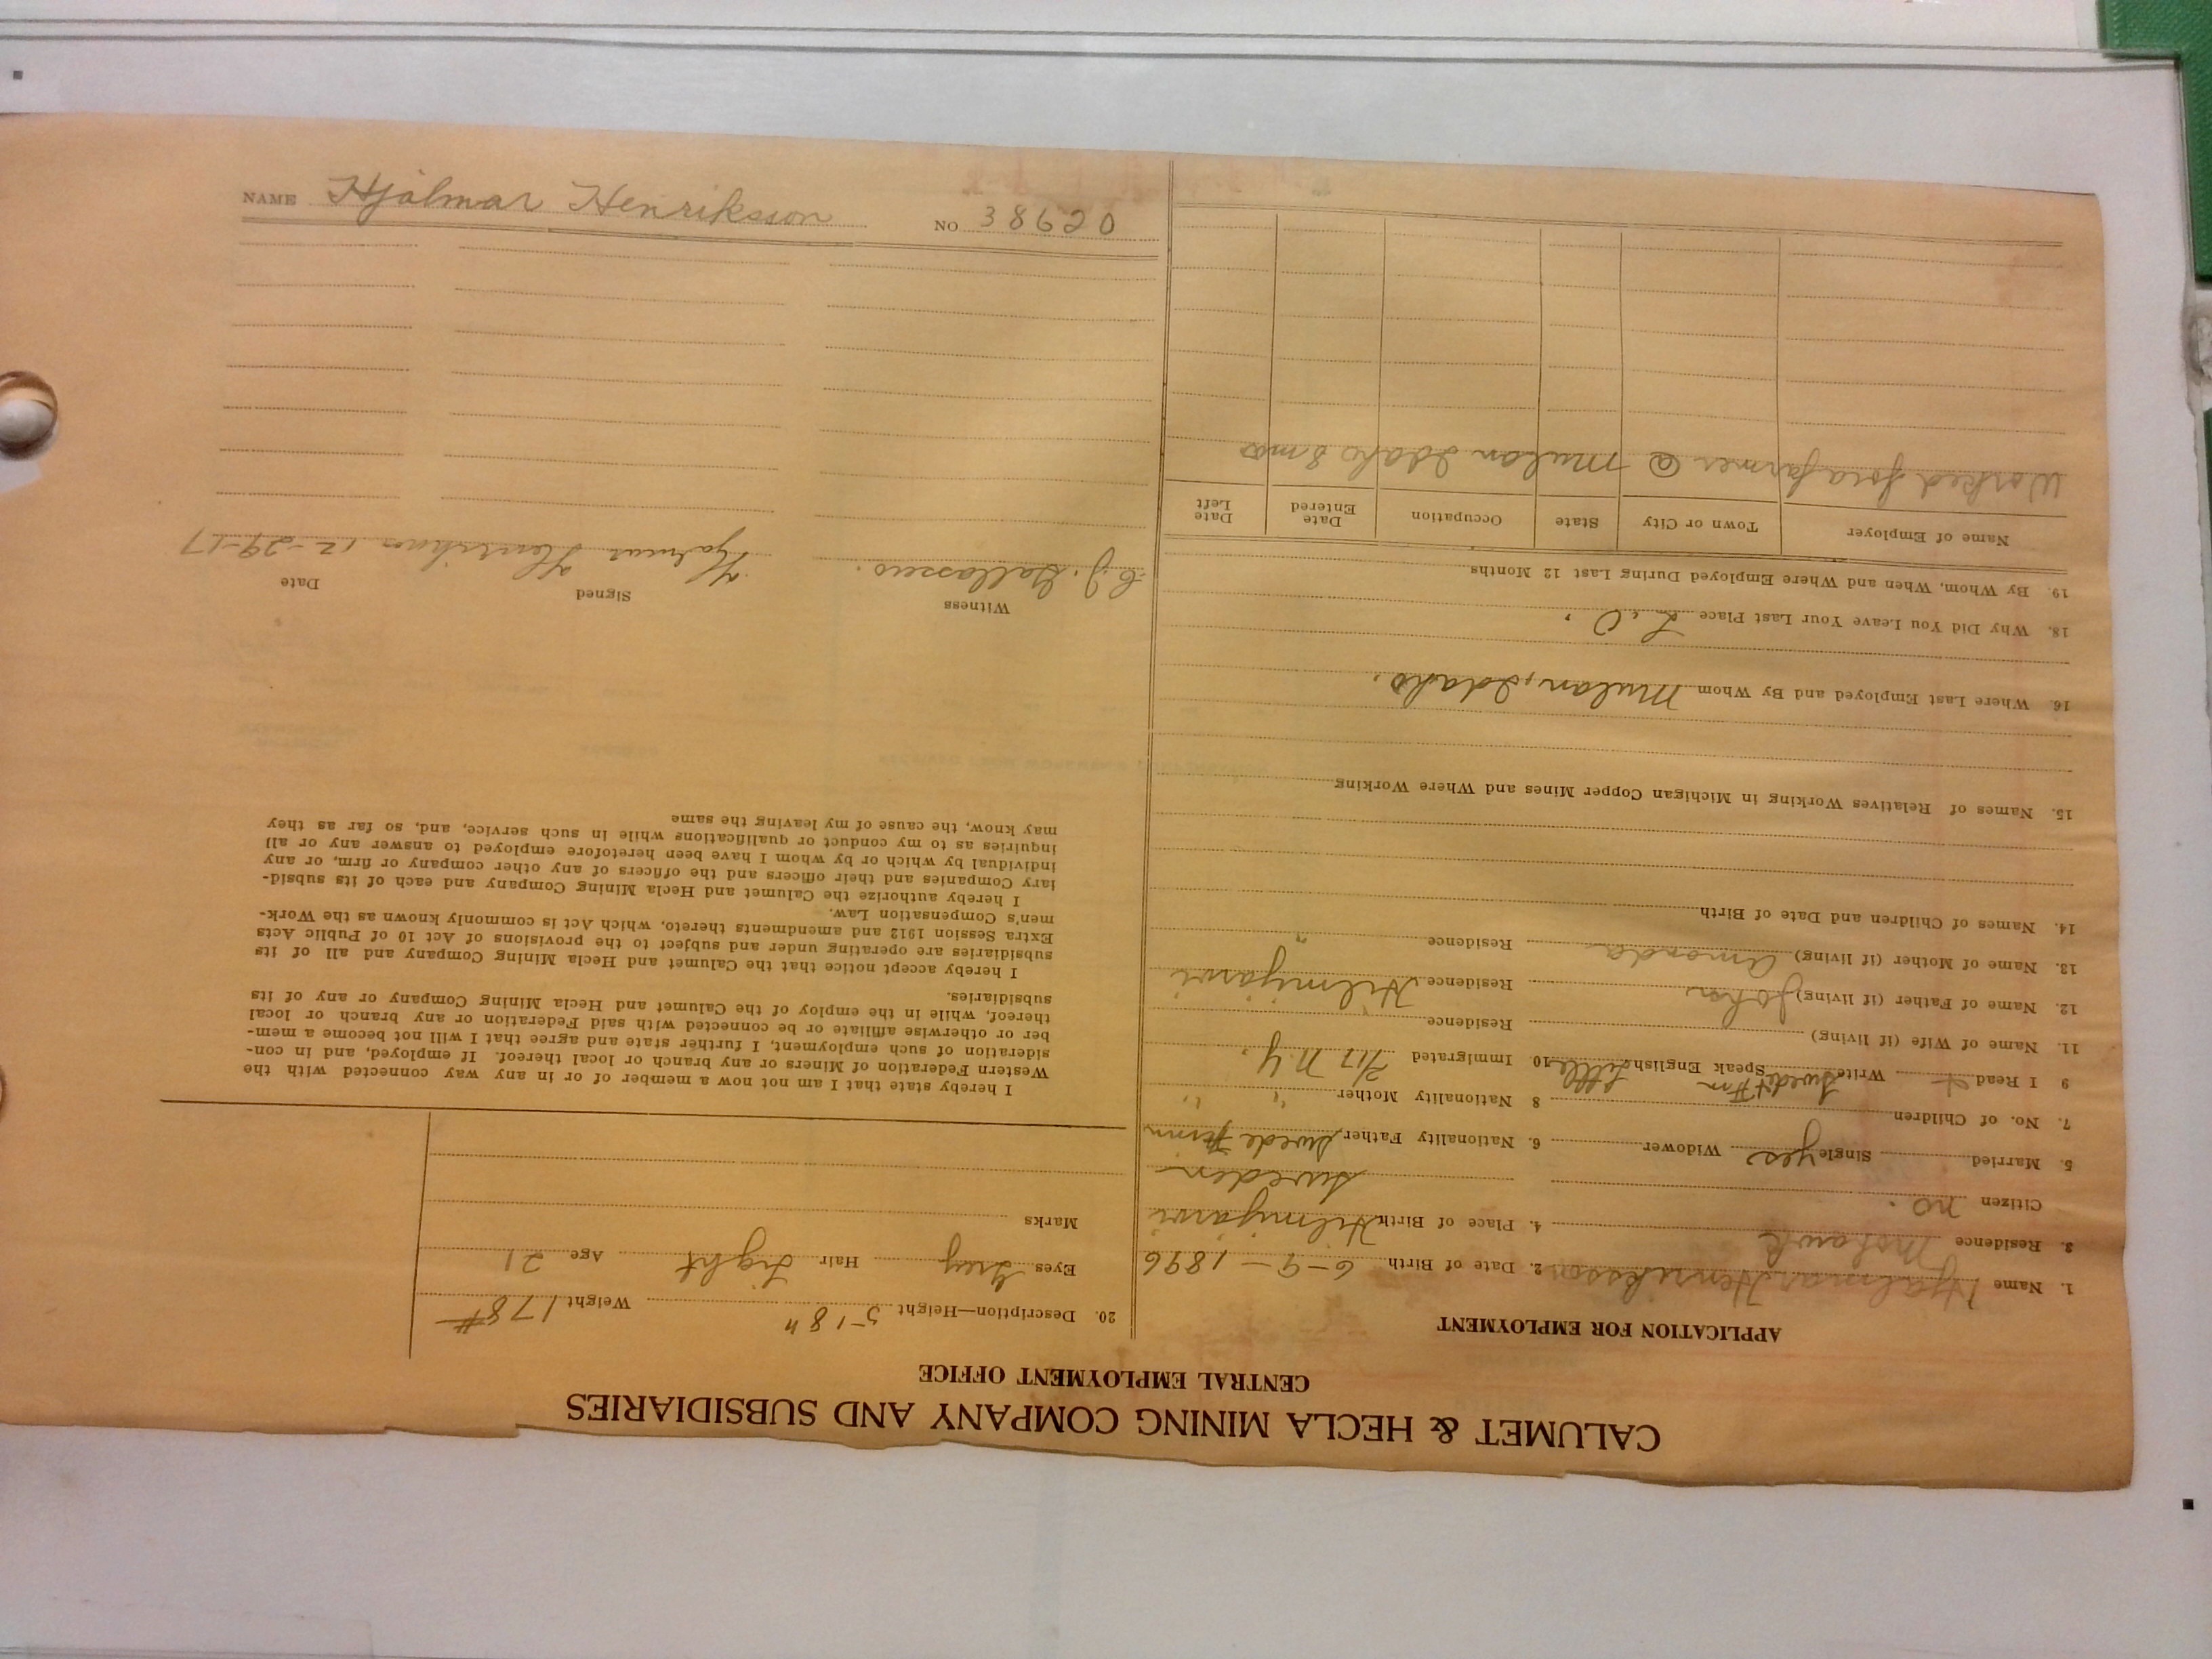 CALUMET & HECLA MINING COMPANY AND SUBSIDIARIES
CENTRAL EMPLOYMENT OFFICE
APPLICATION FOR EMPLOYMENT
1. Name Hjalmar Henriksson 2. Date of Birth 6-9-1896
3. Residence Mohawk 4. Place of Birth Hilmijarvi
Citizen no. Sweden
5. Married Single yes Widower 6. Nationality Father Swede Finn
7. No. of Children 8 Nationality Mother " "
9 I Read & Write Swede & Finn Speak English Little 10 Immigrated 2/17 N.Y.
11. Name of Wife (if living) Residence
12. Name of Father (if living) John Residence Hilmijarvi
13. Name of Mother (if living) Amanda Residence "
14. Names of Children and Date of Birth
15. Names of Relatives Working in Michigan Copper Mines and Where Working
16. Where Last Employed and By Whom Mulan, Idaho.
18. Why Did You Leave Your Last Place L.O.
19. By Whom, When and Where Employed During Last 12 Months
Name of Employer Town or City State Occupation Date Entered Date Left
Worked for a farmer @ Mulan Idaho 8 mos
20. Description—Height 5' 8" Weight 178#
Eyes Grey Hair Light Age 21
Marks
I hereby state that I am not now a member of or in any way connected with the
Western Federation of Miners or any branch or local thereof. If employed, and in con-
sideration of such employment, I further state and agree that I will not become a mem-
ber or otherwise affiliate or be connected with said Federation or any branch or local
thereof, while in the employ of the Calumet and Hecla Mining Company or any of its
subsidiaries.
I hereby accept notice that the Calumet and Hecla Mining Company and all of its
subsidiaries are operating under and subject to the provisions of Act 10 of Public Acts
Extra Session 1912 and amendments thereto, which Act is commonly known as the Work-
men's Compensation Law.
I hereby authorize the Calumet and Hecla Mining Company and each of its subsid-
iary Companies and their officers and the officers of any other company or firm, or any
individual by which or by whom I have been heretofore employed to answer any or all
inquiries as to my conduct or qualifications while in such service, and, so far as they
may know, the cause of my leaving the same
Witness Signed Date
C. J. Hjalmar Henriksson 12-29-17
NAME Hjalmar Henriksson NO 38620